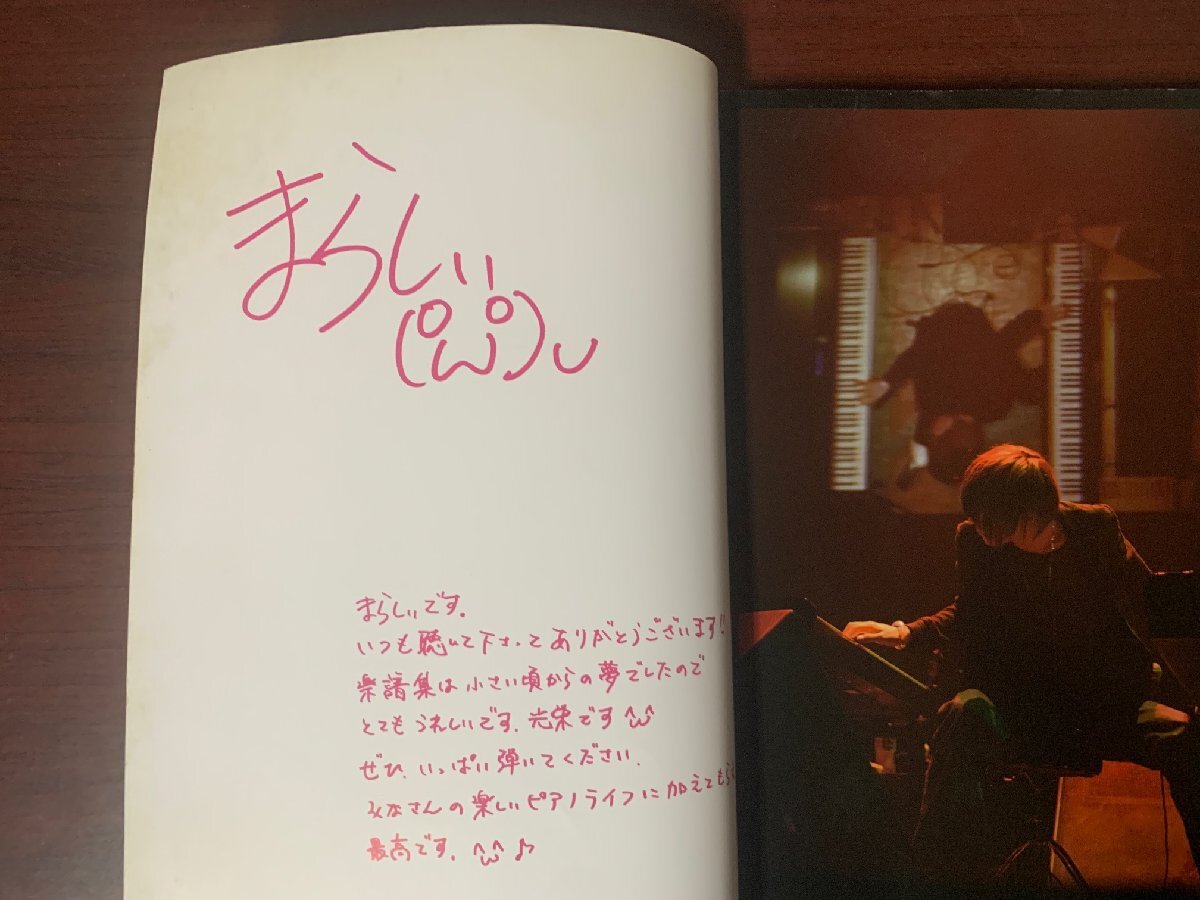 まらしぃ
(゚ω゚)し
まらしぃです。
いつも聴いて下さってありがとうございます!!
楽譜集は小さい頃からの夢でしたので
とてもうれしいです。光栄です^ω^
ぜひ、いっぱい弾いてください。
みなさんの楽しいピアノライフに加えてもら
最高です。^ω^♪